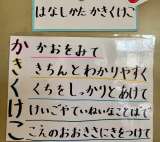 はなしかた かきくけこ
かおをみて
きちんとわかりやすく
くちをしっかりとあけて
けいごやていねいなことばで
こえのおおきさにきをつけて